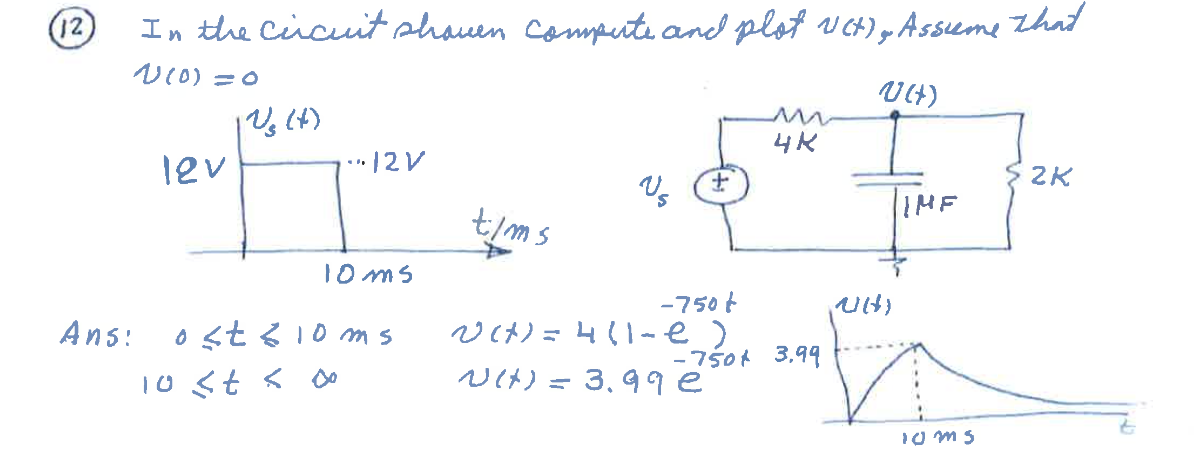 12 In the circuit shown compute and plot v(t), Assume that
v(0) = 0
Vs(t)
12V
...12V
t/ms
10 ms
v(t)
4K
Vs
±
1MF
2K
Ans: 0 ≤ t ≤ 10 ms v(t) = 4(1-e^-750t)
10 ≤ t < ∞ v(t) = 3.99 e^-750t
v(t)
3.99
10 ms
t